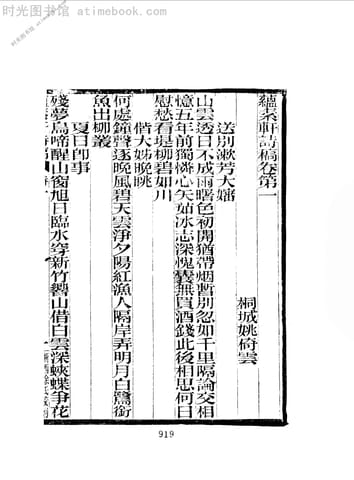 时光图书馆 - atimebook.com
蘊素軒詩稿卷第一
桐城姚倚雲
送別漱芳大嬸
山雲透日不成雨曙色初開猶帶烟暫別忽如千里隔論交相
憶五年前獨憐心矢茹冰志深愧囊無買酒錢此後相思何日
慰愁看堤柳碧如川
偕大姊晚眺
何處鐘聲逐晚風碧天雲淨夕陽紅漁人隔岸弄明月白鷺銜
魚出柳叢
夏日即事
殘夢鳥啼醒山窗旭日臨水穿新竹響山借白雲深蛺蝶爭花
919
时光图书馆 - atimebook.com